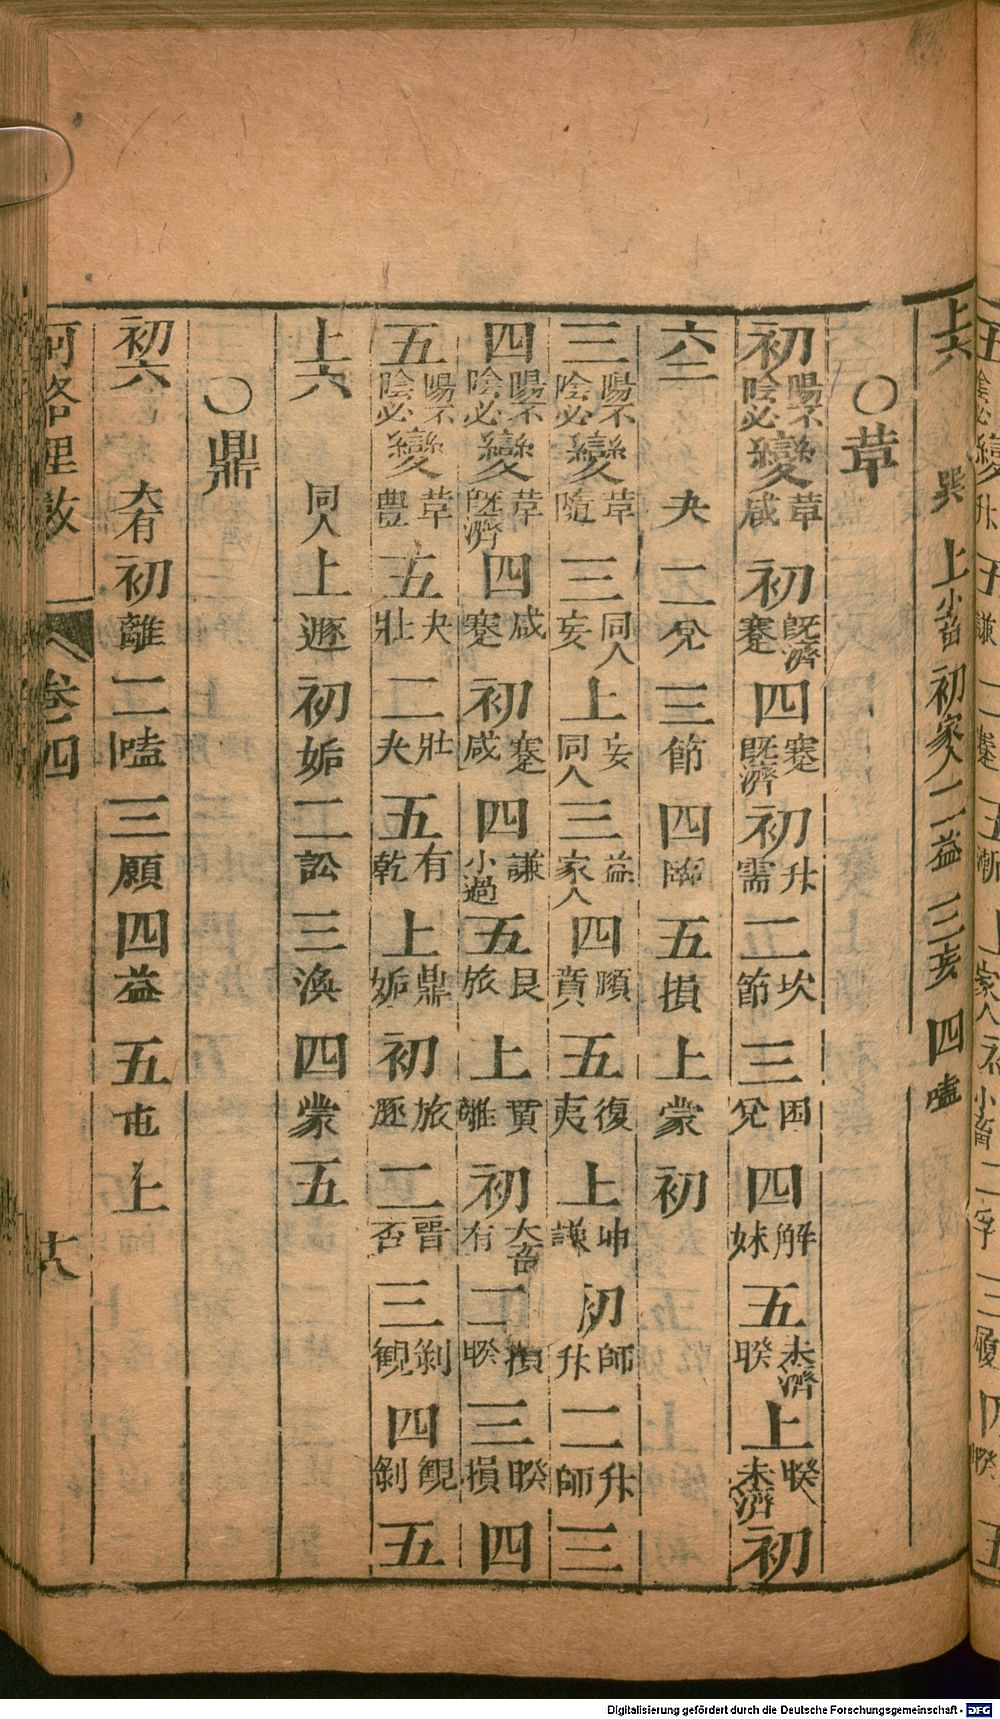 上六 巽 上 小畜 初 家人 二 益 三 妄 四 嗑
○革
初 陽不陰必 變 革咸 初 既濟蹇 四 蹇既濟 初 升需 二 坎節 三 困兌 四 解妹 五 未濟睽 上 睽未濟 初
六二 夬 二 兌 三 節 四 臨 五 損 上 蒙 初
三 陽不陰必 變 革隨 三 同人妄 上 妄同人 三 益家人 四 頤賁 五 復夷 上 坤謙 初 師升 二 升師 三
四 陽不陰必 變 革既濟 四 咸蹇 初 蹇咸 四 謙小過 五 艮旅 上 賁離 初 大畜有 二 損睽 三 睽損 四
五 陽不陰必 變 革豐 五 夬壯 二 壯夬 五 有乾 上 鼎姤 初 旅遯 二 晉否 三 剝觀 四 觀剝 五
上六 同人 上 遯 初 姤 二 訟 三 渙 四 蒙 五
○鼎
初六 大有 初 離 二 嗑 三 頤 四 益 五 屯 上
河洛理數 卷四 十六
Digitalisierung gefördert durch die Deutsche Forschungsgemeinschaft - DFG